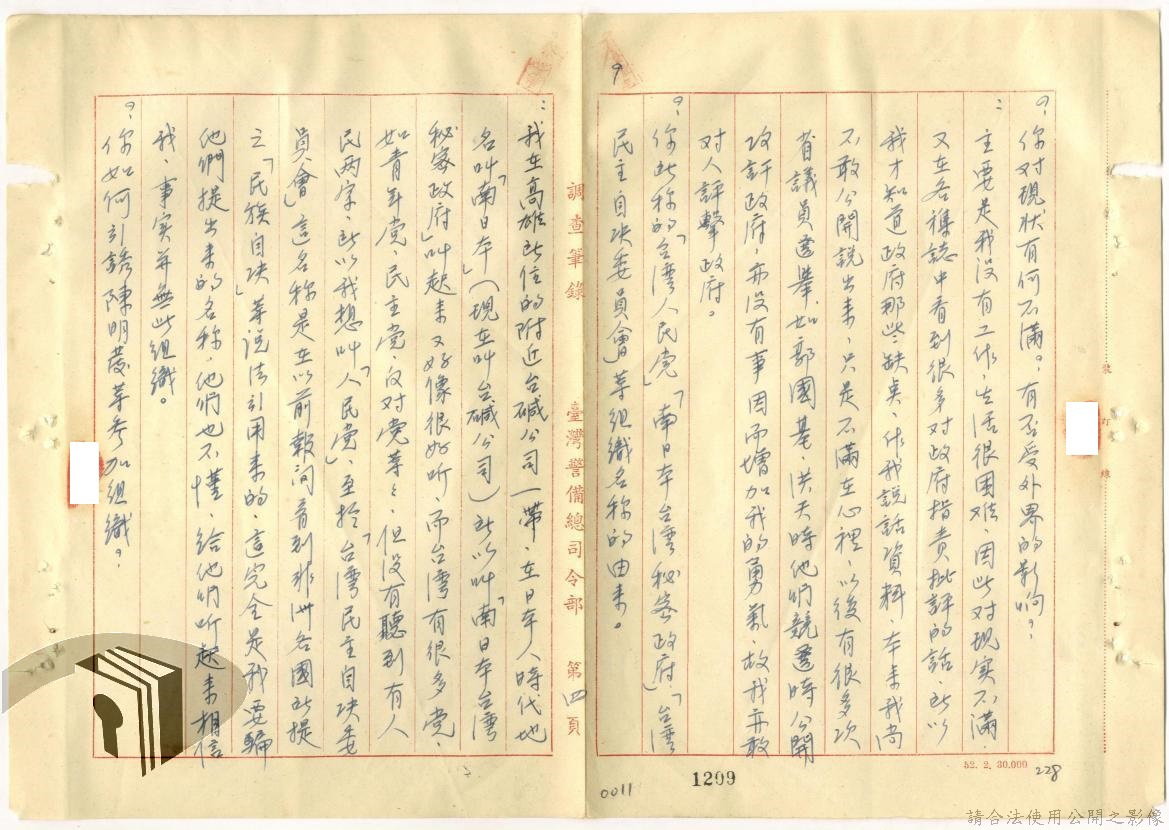 ?: 你对現状有何不滿? 有否受外界的影响?
: 主要是我没有工作,生活很困难,因此对現实不滿,
又在各種誌中看到很多对政府指責批評的話,所以
我才知道政府那些缺臭,作我説話資料,本来我尚
不敢公開說出来,只是不滿在心裡,以後有很多次
省議員選舉,如郭國基、洪天時他們競選時公開
攻訐政府,亦没有事因而增加我的勇氣,故我亦敢
对人評擊政府。
?: 你所称的「台湾人民党」「南日本台湾秘密政府」「台湾
民主自决委員會」等組織名称的由来。
9
: 我在高雄所住的附近台碱公司一帶,在日本人時代地
名叫「南日本」(現在叫台碱公司)所以叫「南日本台湾
秘密政府」叫起来又好像很好听,而台湾有很多党,
如青年党、民主党、反对党等,但没有聽到有人
民两字,所以我想叫「人民党」,至於「台湾民主自决委
員會」這名称是在以前報间看到非洲各國所提
之「民族自决」等说法引用来的,這完全是我要騙
他們提出来的名称,他們也不懂,給他們听起来相信
我,事实并無此組織。
?: 你如何引誘陳明發等参加組織?
調查筆錄 臺灣警備總司令部 第四頁
裝 訂 線
52. 2. 30.000
228
1209
0011
請合法使用公開之影像